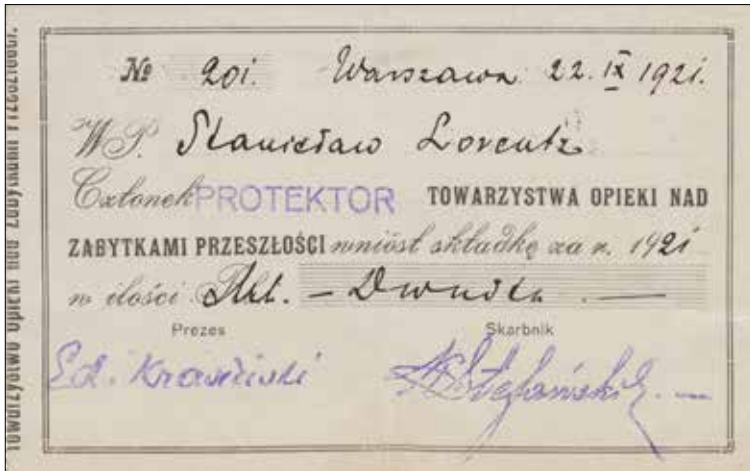 Towarzystwo Opieki nad Zabytkami Przeszłości.
№ 201. Warszawa 22. IX 1921.
WP. Stanisław Lorentz
Członek PROTEKTOR TOWARZYSTWA OPIEKI NAD
ZABYTKAMI PRZESZŁOŚCI wniósł składkę za r. 1921
w ilości Mk. —
Prezes Skarbnik
Ed. Krasiński